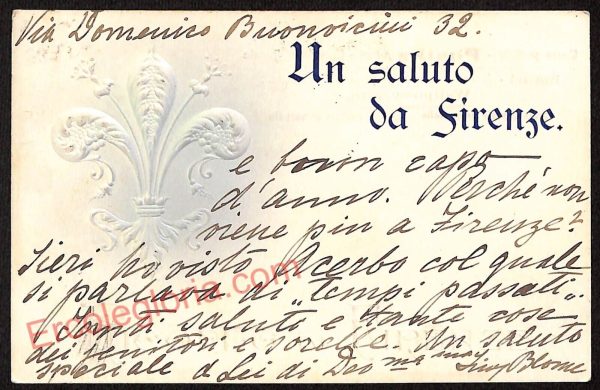 Via Domenico Buonvicini 32.
Un saluto
da Firenze.
e buon capo
d'anno. Perché non
viene più a Firenze?
Ieri ho visto Acerbo col quale
si parlava di "tempi passati".
Tanti saluti e tante cose
dei genitori e sorelle. Un saluto
speciale a Lei di Deo ma
Blome
Ermlegloria.com